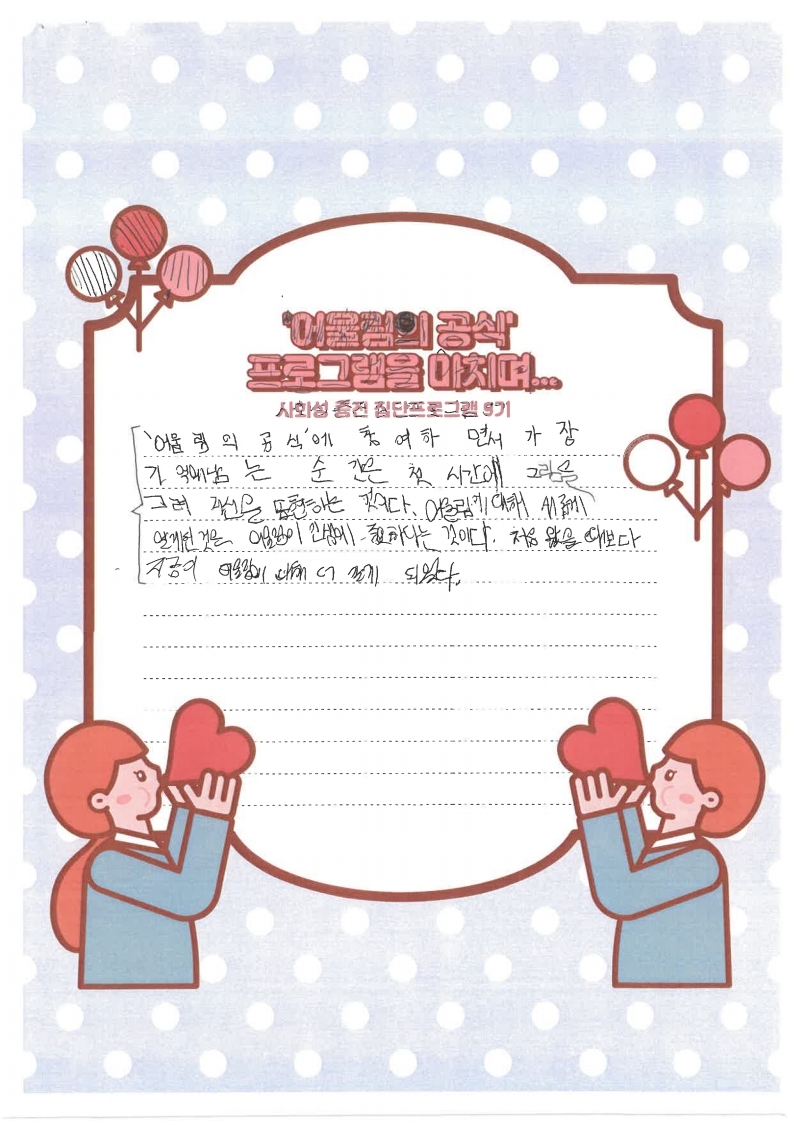 '어울림의 공식'
프로그램을 마치며...
사회성 증진 집단프로그램 9기
'어울림의 공식'에 참여하면서 가장
기억에남는 순간은 첫 시간에 그림을
그려 자신을 표현하는 것이다. 어울림에 대해 새롭게
알게된것은 어울림이 인생에 필요하다는 것이다. 처음 왔을 때보다
지금이 어울림에 대해 더 알게 되었다.